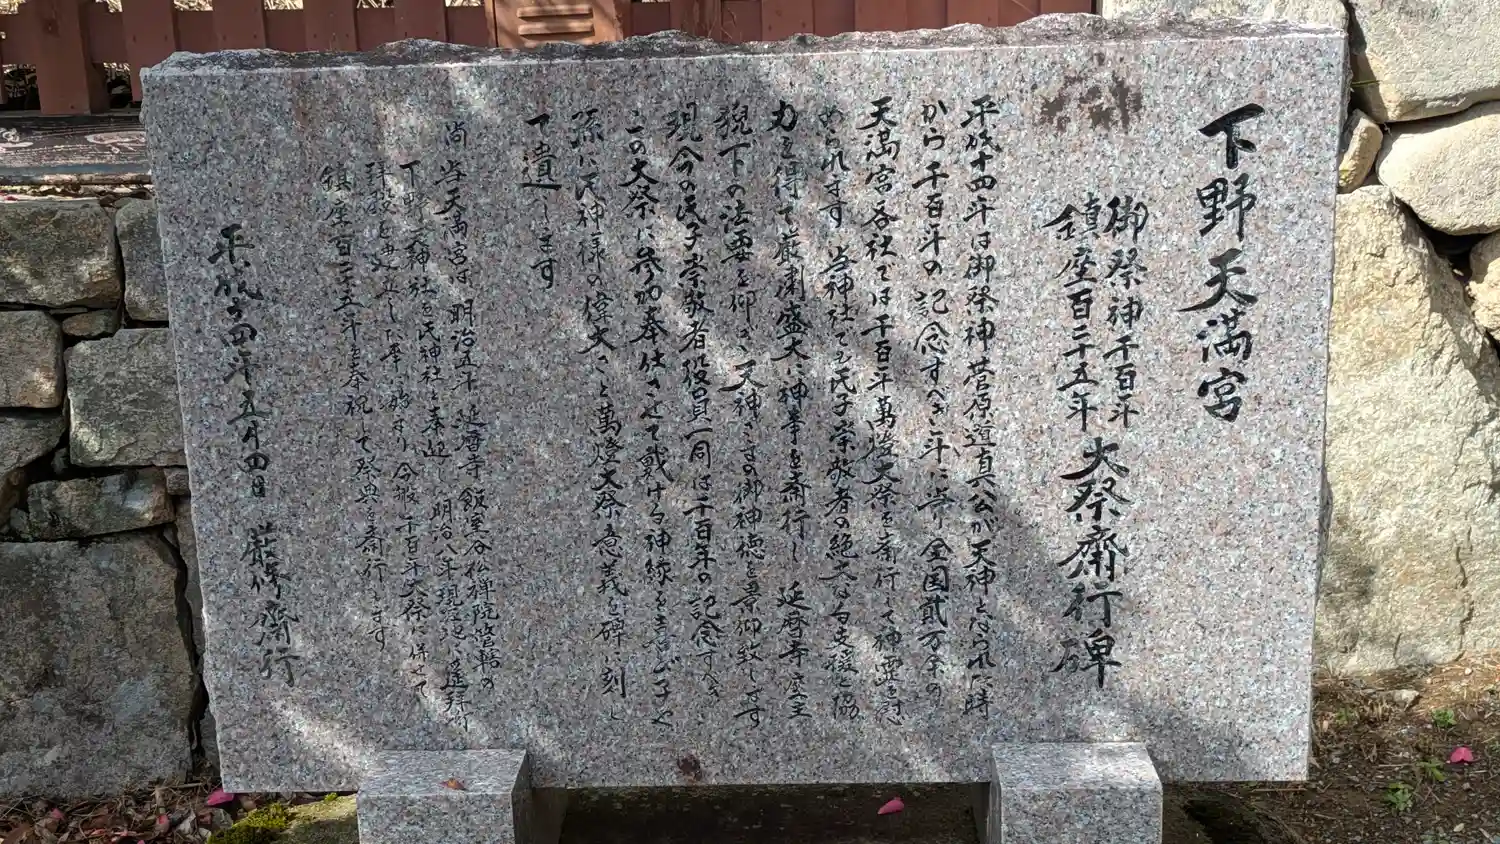 下野天満宮
御祭神千百年
鎮座百二十五年
大祭斎行碑
平成十四年は御祭神菅原道真公が天神となられた時
から千百年の記念すべき年に当り全国貮万余の
天満宮各社では千百年萬燈大祭を斎行して神霊を慰
められます 当神社でも氏子崇敬者の絶大な御支援と協
力を得て厳粛盛大に神事を斎行し 延暦寺座主
猊下の法要を仰ぎ 天神さまの御神徳を景仰致します
現今の氏子崇敬者役員一同は千百年の記念すべき
この大祭に参加奉仕させて戴ける神縁を喜び子々
孫に天神様の偉大さと萬燈大祭の意義を碑に刻し
て遺します
尚 当天満宮は明治五年 延暦寺 飯室谷松禅院管轄の
下野二神社を氏神社と奉迎し 明治八年現在地に遥拝所
拝殿を建立した事に始まり 今般千百年大祭に併せて
鎮座百二十五年を奉祝して祭典を斎行します
平成十四年五月四日 厳修斎行